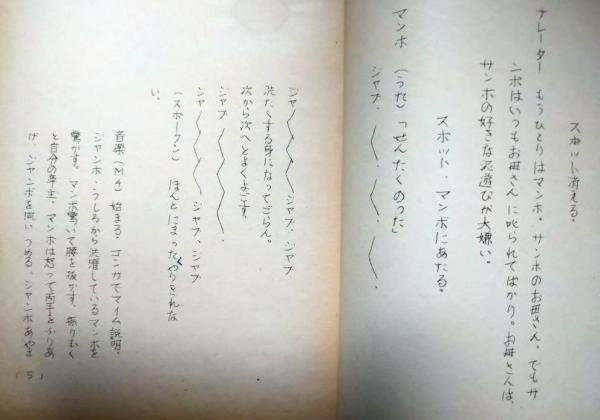 スポット消える。
ナレーター　もうひとりはマンボ・サンボのお母さん。でもサ
ンボはいつもお母さんに叱られてばかり。お母さんは、
サンボの好きな泥遊びが大嫌い。
スポット・マンボにあたる。
マンボ　（うた）「せんたくのうた」
ジャブ・〱・〱・〱・
ジャ〱〱〱ジャブ、ジャブ・
洗たくする身になってごらん。
次から次へとよくよごす。
ジャブ〱〱〱・
ジャ〱〱〱ジャブ、ジャブ
（スポークン）　ほんとにまったくやりきれな
い。
音楽（M4）始まる・コンガでマイム説明・
ジャンボ・うしろから洗濯しているマンボを
驚かす。マンボ驚いて腰を抜かす。振りむく
と自分の亭主・マンボは怒って両手をふりあ
げ、ジャンボを問いつめる。ジャンボあやま
（5）